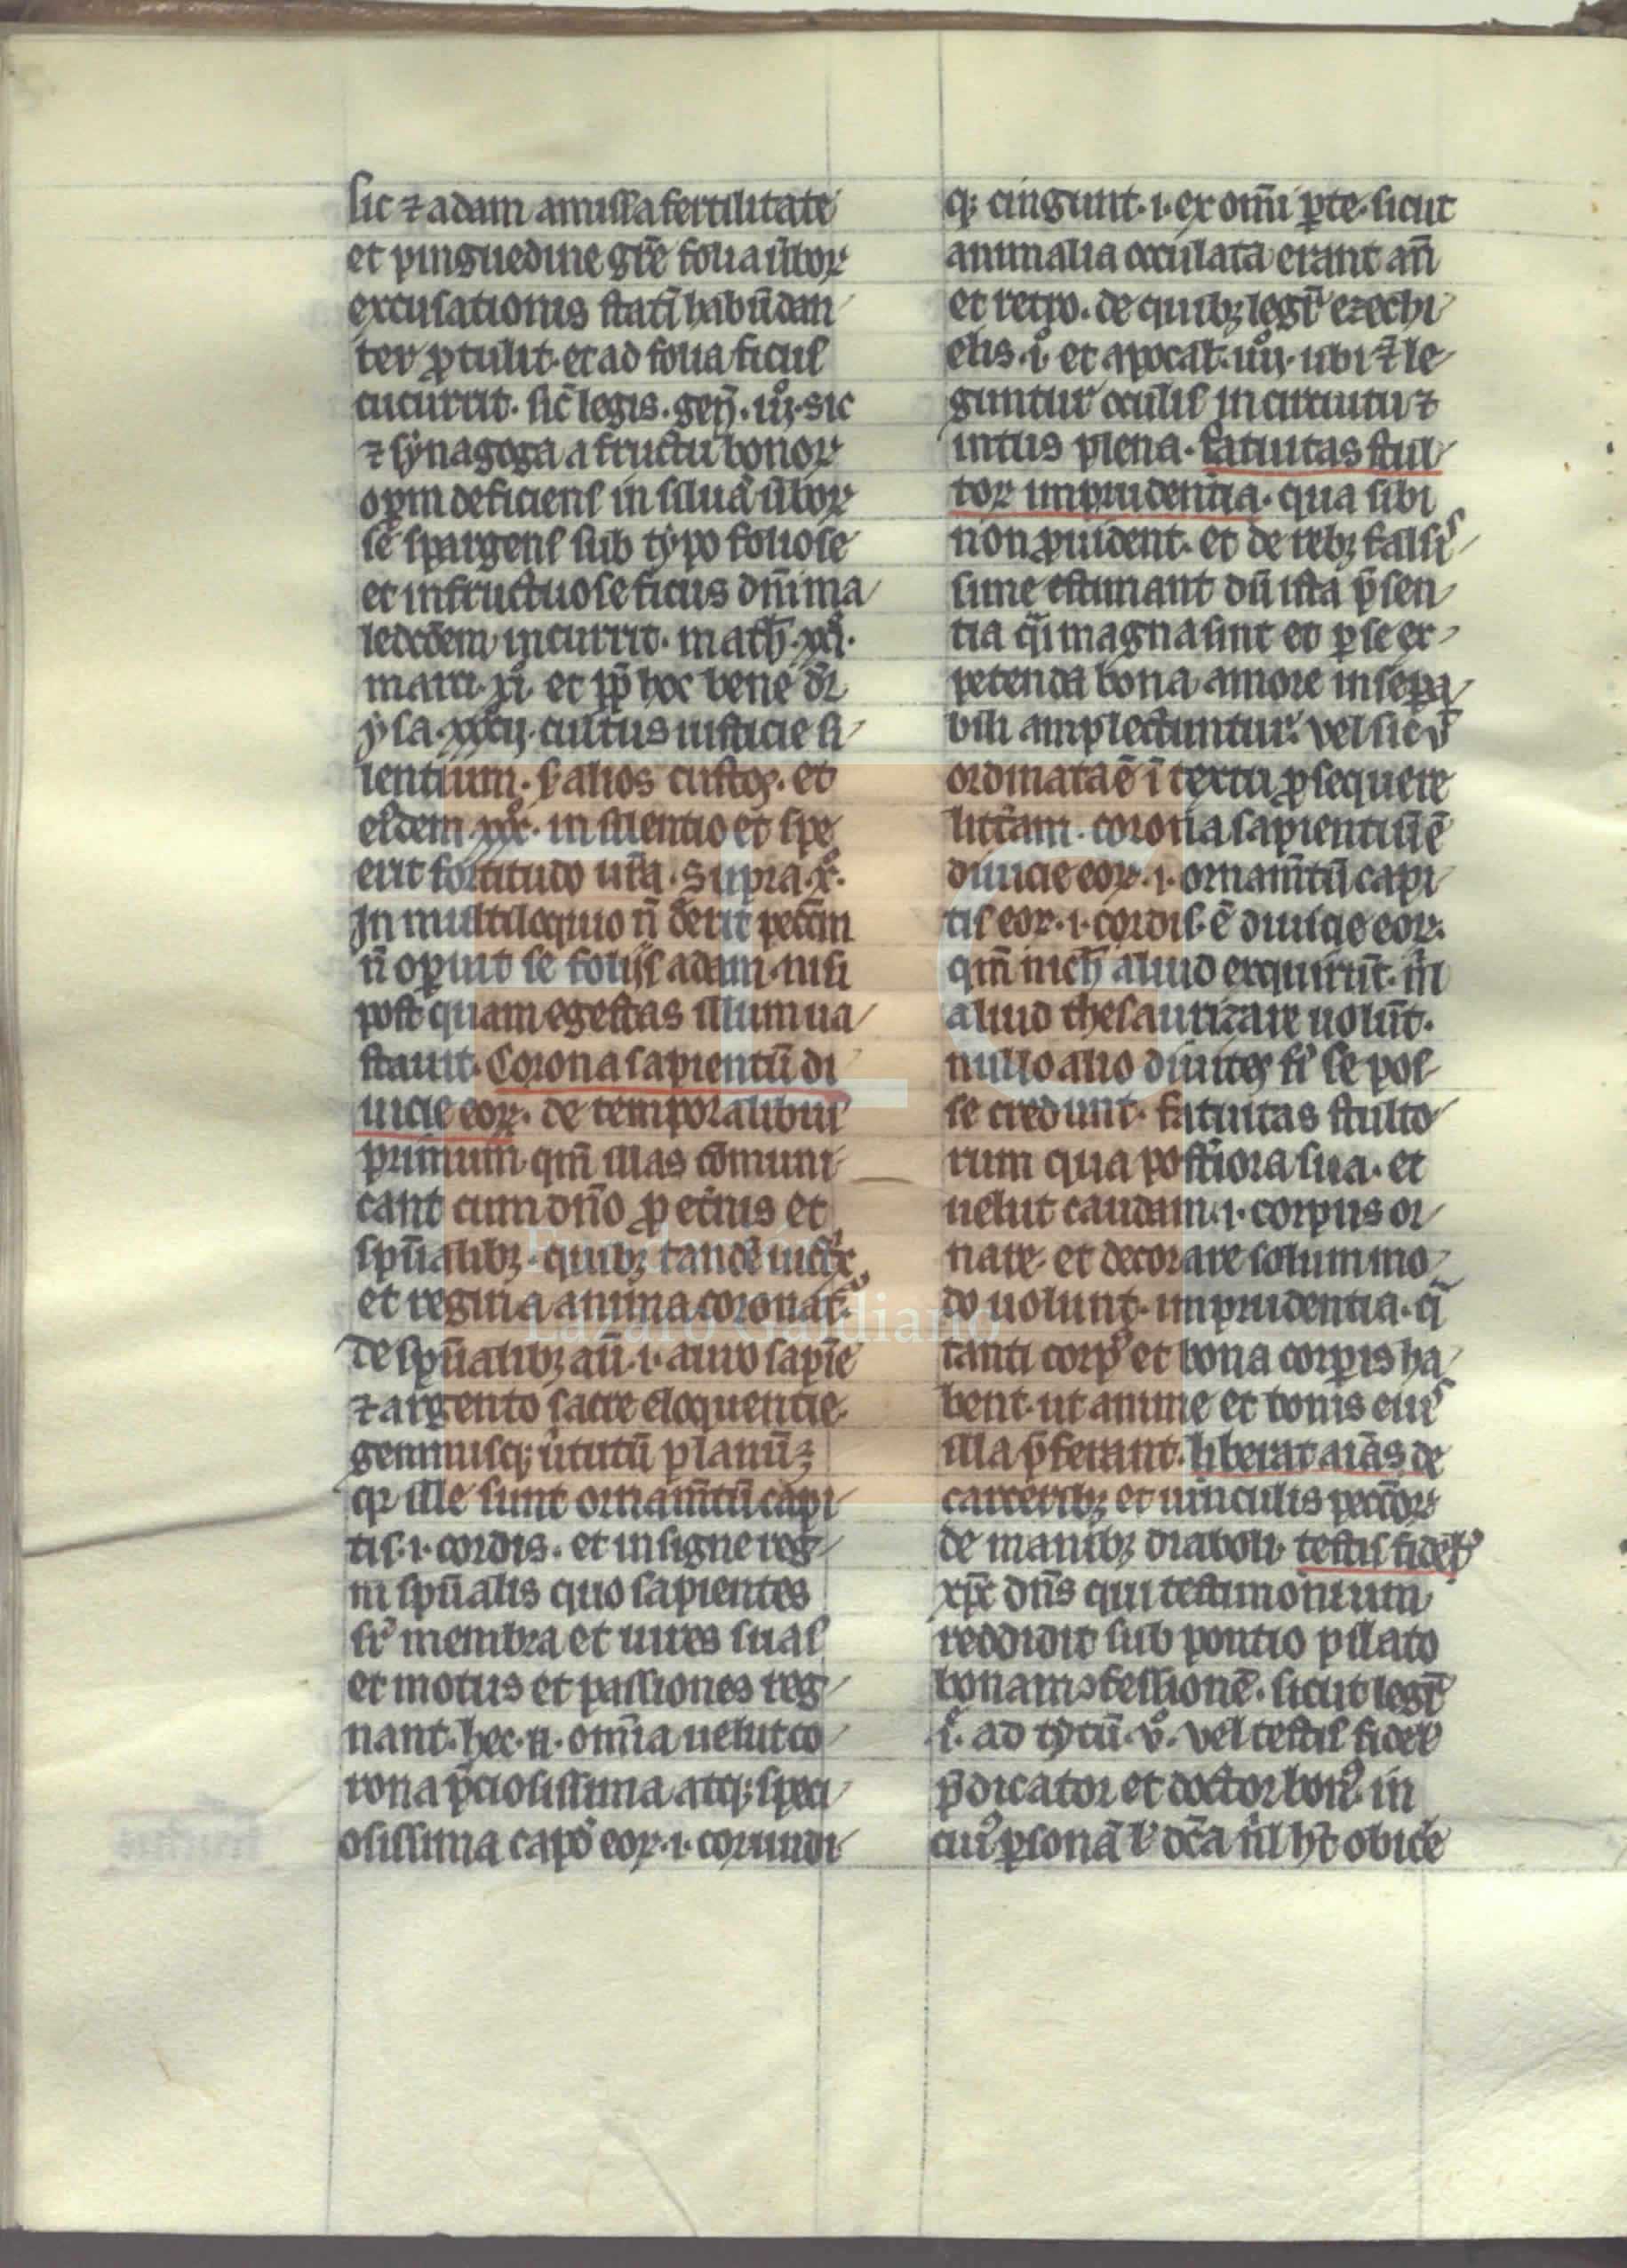 sic ⁊ adam amissa fertilitate
et pinguedine gr̄e folia ūboꝝ
excusationis statī habūdan
ter ꝓtulit. et ad folia ficus
cucurrit. sic̄ legis. gen̄. iijº. sic
⁊ synagoga a fructu bonoꝝ
oꝑum deficiens in siluā ūboꝝ
se spargens sub typo foliose
et infructuose ficus dn̄i ma
ledc̄oem incurrit. math̄. xxi.
marci. xi. et ꝓp̄ hoc bene dr̄
ysa. xxxij. cultus iusticie si
lentium. s̄ alios custos. et
eiusdem xxx. in silentio et spe
erit fortitudo ur̄a. supra. xº.
In multiloquio n̄ deerit pecc̄m
n̄ oꝑuit se folijs adam. nisi
postquam egestas illum ua
stauit. Corona sapientū di
uicie eoꝝ. de temporalibus
primum qm̄ illas cōmuni
cant cum dn̄o ꝓ et̄nis et
sp̄ualibꝫ. quibꝫ tandē
et regina anima coronat᷑.
de sp̄ualibꝫ aū. i. auro sapīe
⁊ argento sacre eloquentie.
gemmisqꝫ ūtutū planū ꝫ
qꝛ ille sunt ornam̄tū capi
tis. i. cordis. et insigne reg
ni sp̄ualis quo sapientes
sr̄ membra et uires suas
et motus et passiones reg
nant. hec. n. om̄ia uelut co
rona p̄ciosissima atqꝫ speci
osissima capd̄ eoꝝ. i. cor undi
qꝫ cingunt. i. ex om̄i ꝑte. sicut
animalia occulata erant an̄
et retro. de quibꝫ legr̄ ezechi
elis. iº. et apocal. iiijº. ubi ⁊ le
guntur oculis in circuitu ⁊
intus plena. fatuitas stul
toꝝ imprudentia. qua sibi
non ꝓuident. et de rebꝫ falsis
sime estimant dū ista p̄sen
tia q̄si magna sint et ꝑ se ex
petenda bona amore insepa
bili amplectuntur. vel sic ū
ordinata ē ī textu ꝓsequere
litt̄am. corona sapientiū ē
diuicie eoꝝ. i. ornam̄tū capi
tis eoꝝ. i. cordis. ē diuicie eoꝝ.
qm̄ nich̄ aliud exquirūt. n̄l
aliud thesaurizare uolūt.
nullo alio diuites fi᷑i se pos
se credunt. fatuitas stulto
rum qua post̄iora sua. et
uelut caudam. i. corpus or
nare. et decorare solummo
do uolunt. imprudentia. q̄
tanti corpꝰ et bona corꝑis ha
bent. ut anime et bonis eius
illa p̄ferant. liberat aīas de
carceribꝫ et uinculis pecc̄oꝝ
de manibꝫ diaboli. testis fidel̄
xp̄c dn̄s qui testimonium
reddidit sub pontio pilato
bonam ꝯfessionē. sicut legr̄
iª. ad tytū. vº. vel testis fidel̄
p̄dicator et doctor bonꝰ. in
cuiꝰ ꝑsonā l̄ doc̄a n̄l hꝫt obice